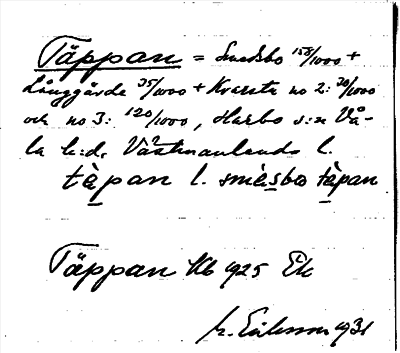 Täppan = Smedsbo 158/1000 +
Långgärde 35/1000 + Kvarsta no 2: 30/1000
och no 3: 120/1000, Harbo s:n Vå-
la h:d, Västmanlands l.
tæ̀pan l. smèsbo tæ̀pan
Täppan Kb 1925 Ek
M. Eriksson 1931